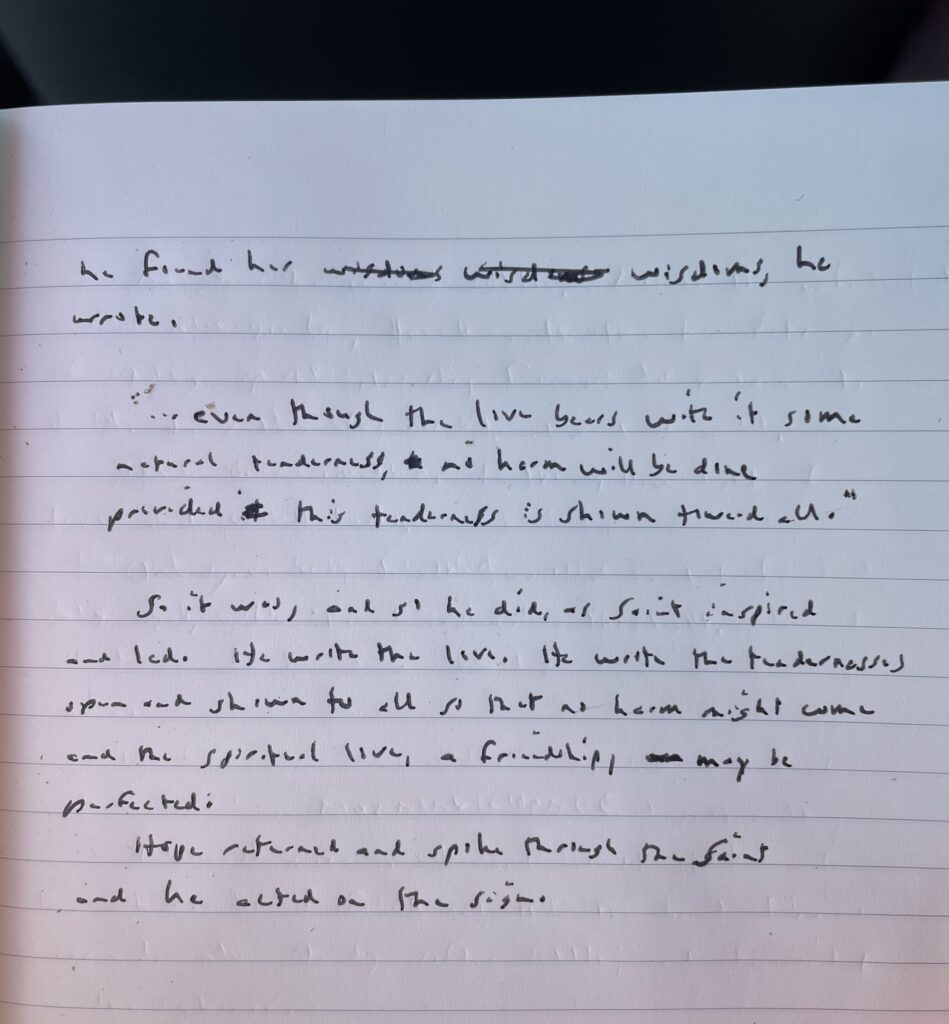 he found her wisdoms wisdoms wisdoms, he
wrote.
"... even though the love bears with it some
natural tenderness, no harm will be done
provided this tenderness is shown toward all."
So it was, and so he did, as Saint inspired
and led. He wrote the love. He wrote the tendernesses
open and shown to all so that no harm might come
and the spiritual love, a friendship, may be
perfected:
Hope returned and spoke through the Saint
and he acted on the sign.